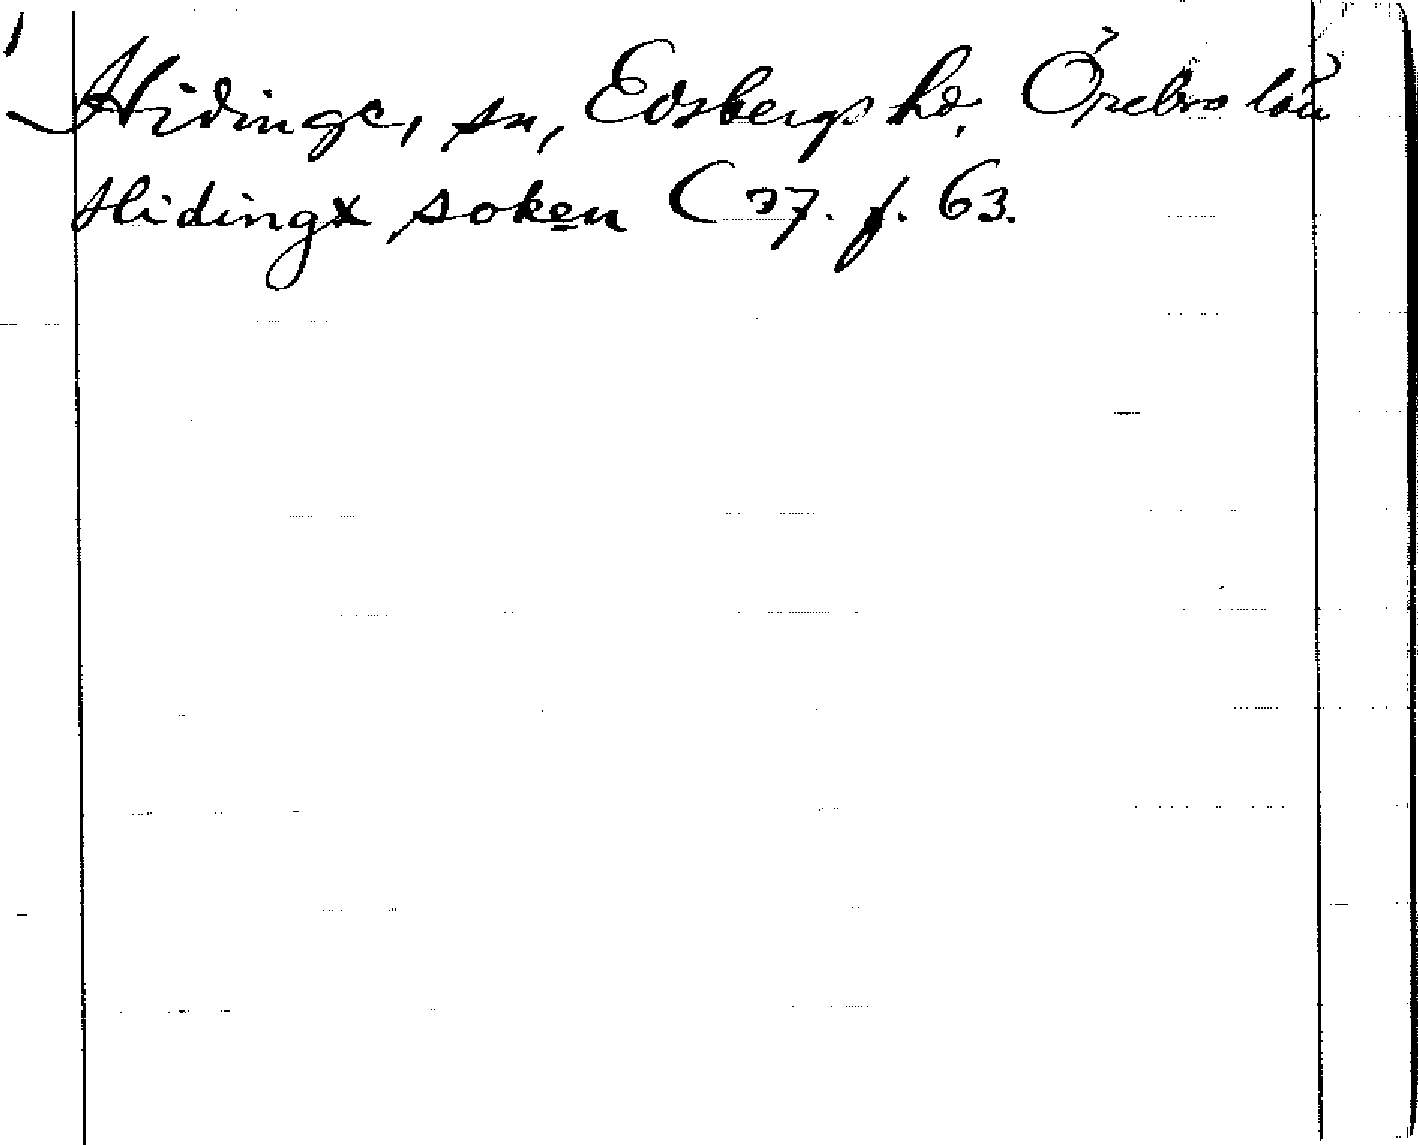 Hidinge, sn, Edsbergs hd, Örebro län
Hidingx soken C 37. f. 63.